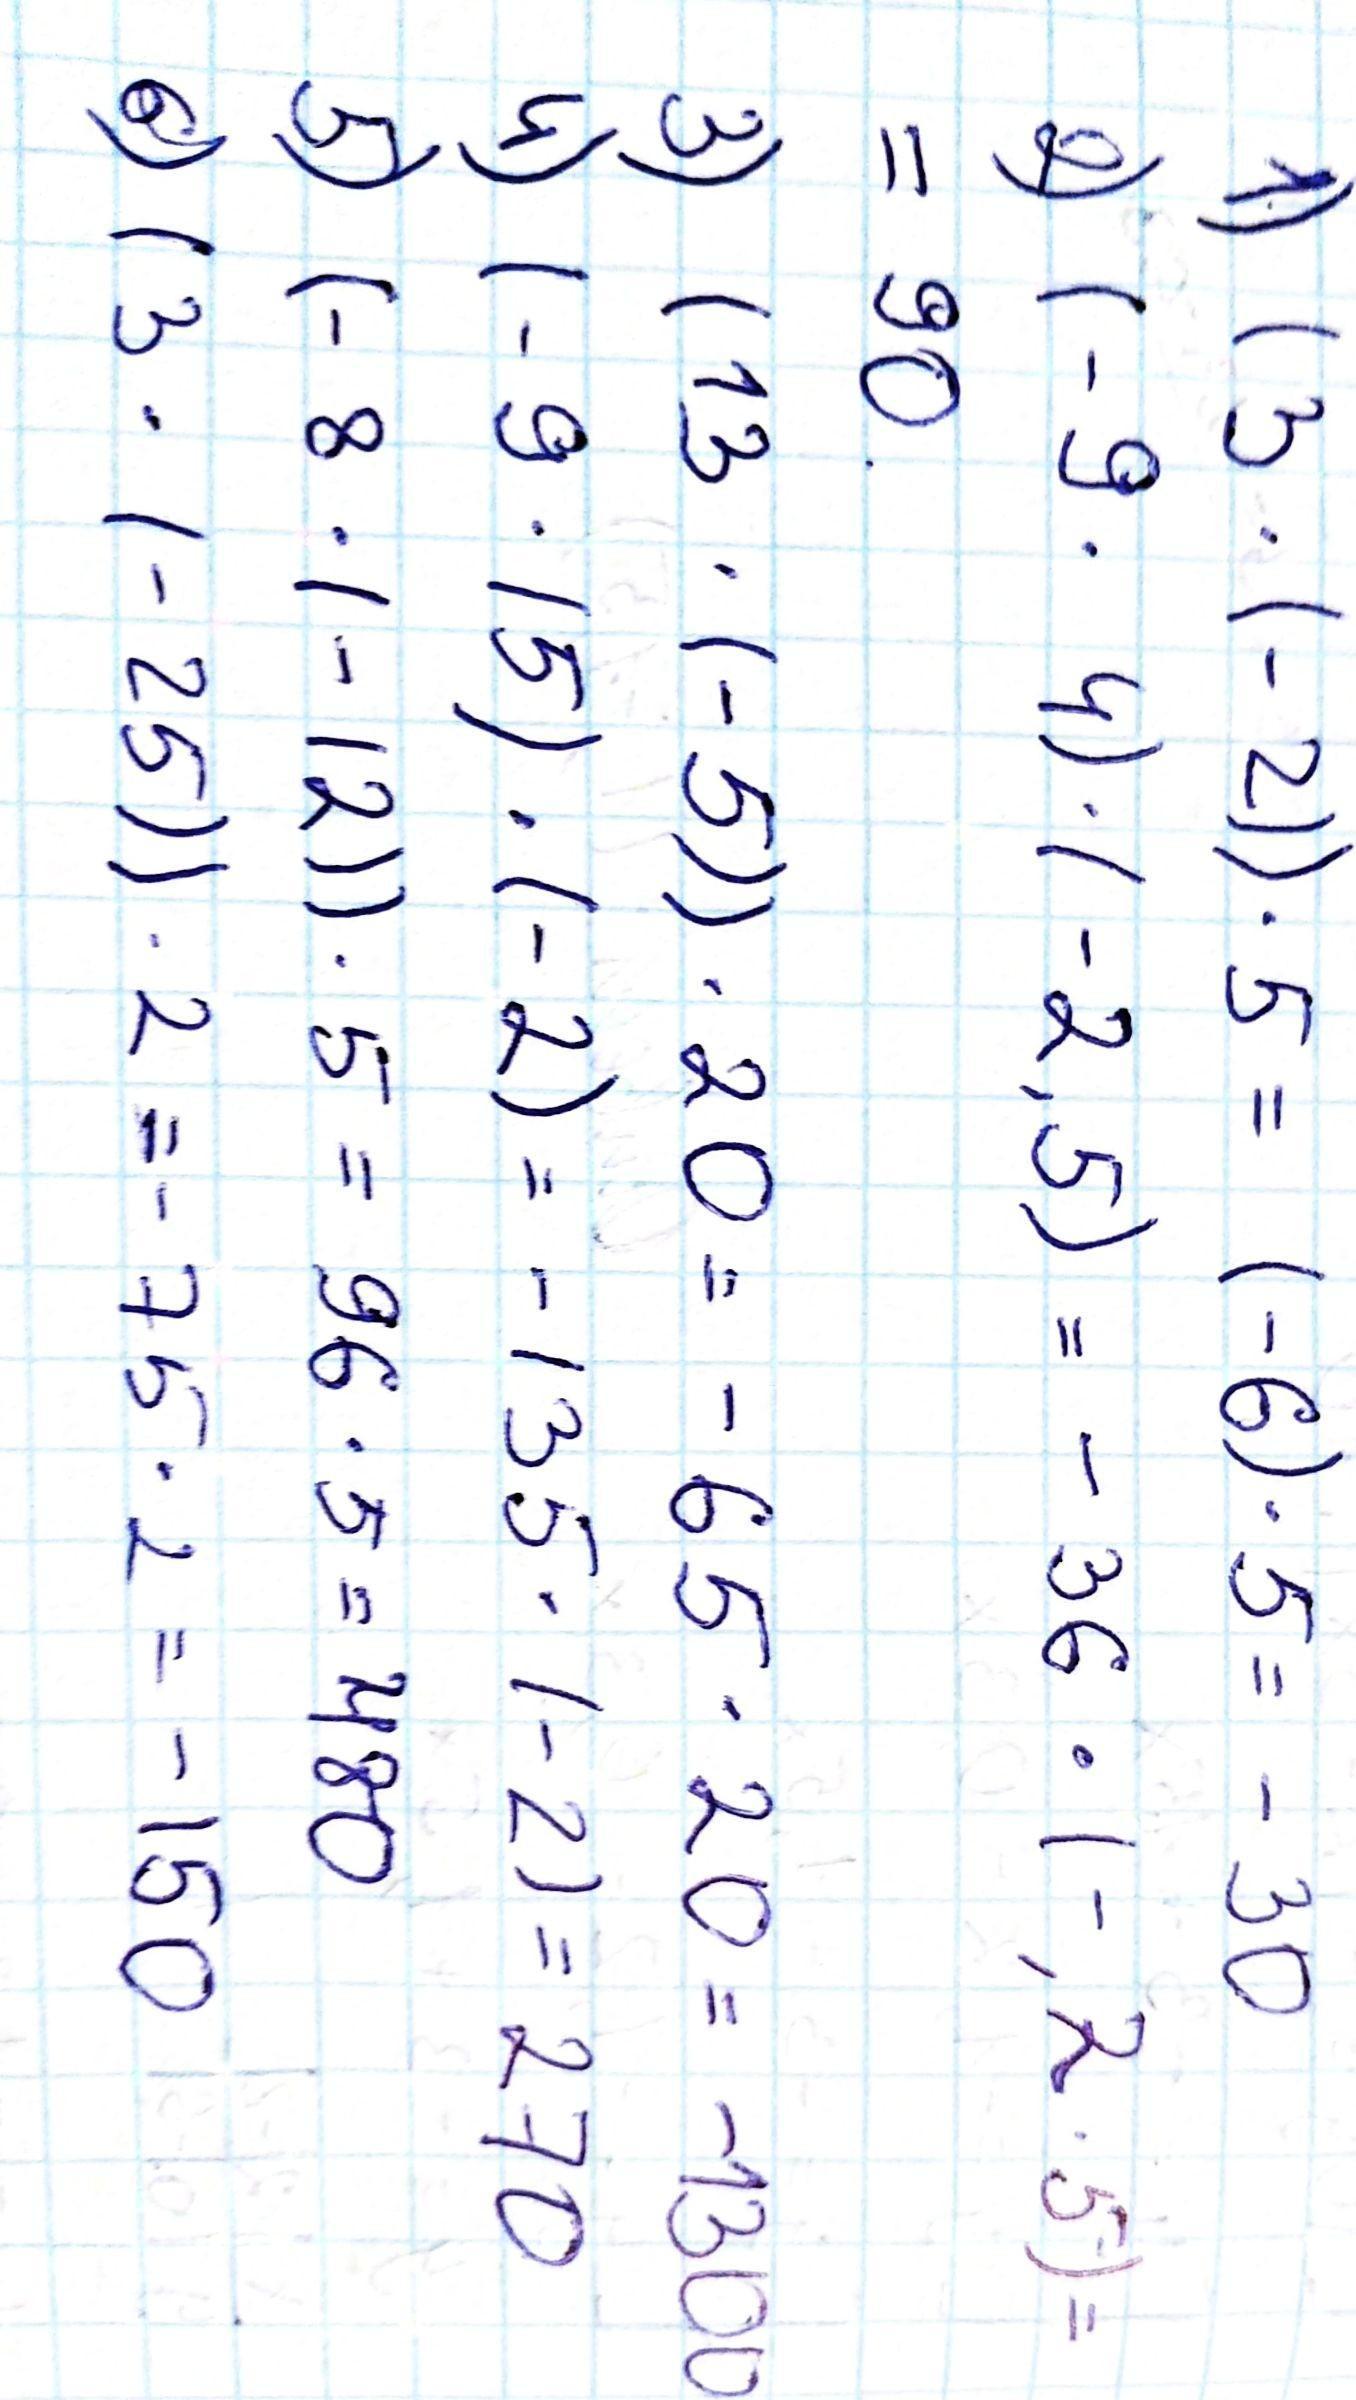 1) (3 · (-2)) · 5 = (-6) · 5 = -30
2) (-9 · 4) · (-2,5) = -36 · (-,2 · 5) =
= 90.
3) (13 · (-5)) · 20 = -65 · 20 = -1300
4) (-9 · 15) · (-2) = -135 · (-2) = 270
5) (-8 · (-12)) · 5 = 96 · 5 = 480
6) (3 · (-25)) · 2 = -75 · 2 = -150